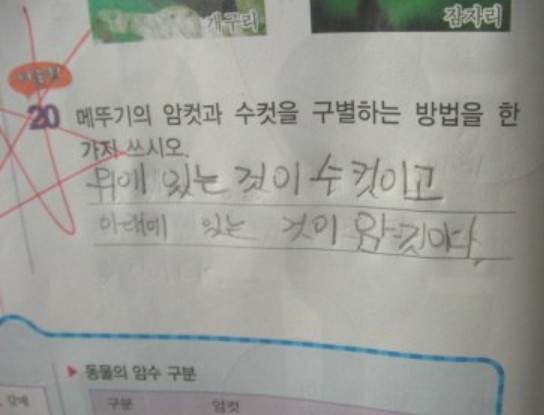 개구리
잠자리
20 메뚜기의 암컷과 수컷을 구별하는 방법을 한
가지 쓰시오.
위에 있는 것이 수컷이고
아래에 있는 것이 암컷이다.
▶ 동물의 암수 구분
구분 암컷